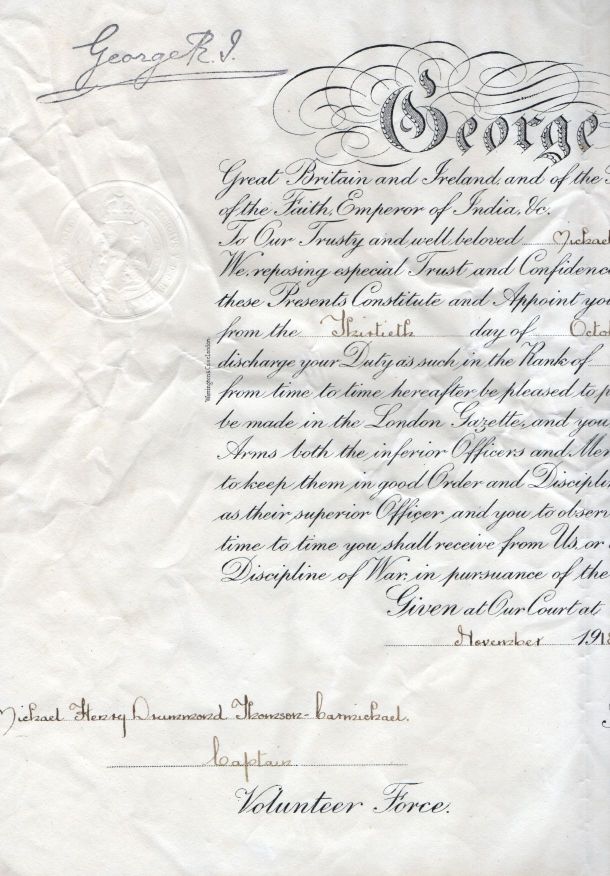 George R.I.
George
Great Britain and Ireland, and of the
of the Faith, Emperor of India, &c.
To Our Trusty and well beloved Michael
We, reposing especial Trust and Confidence
these Presents Constitute and Appoint you
from the Thirtieth day of Octo
discharge your Duty as such in the Rank of
from time to time hereafter be pleased to p
be made in the London Gazette, and you
Arms both the inferior Officers and Men
to keep them in good Order and Disciplin
as their superior Officer, and you to observ
time to time you shall receive from Us, or
Discipline of War, in pursuance of the
Given at Our Court at
November 1918
Michael Henry Drummond Thomson-Carmichael.
Captain
Volunteer Force.